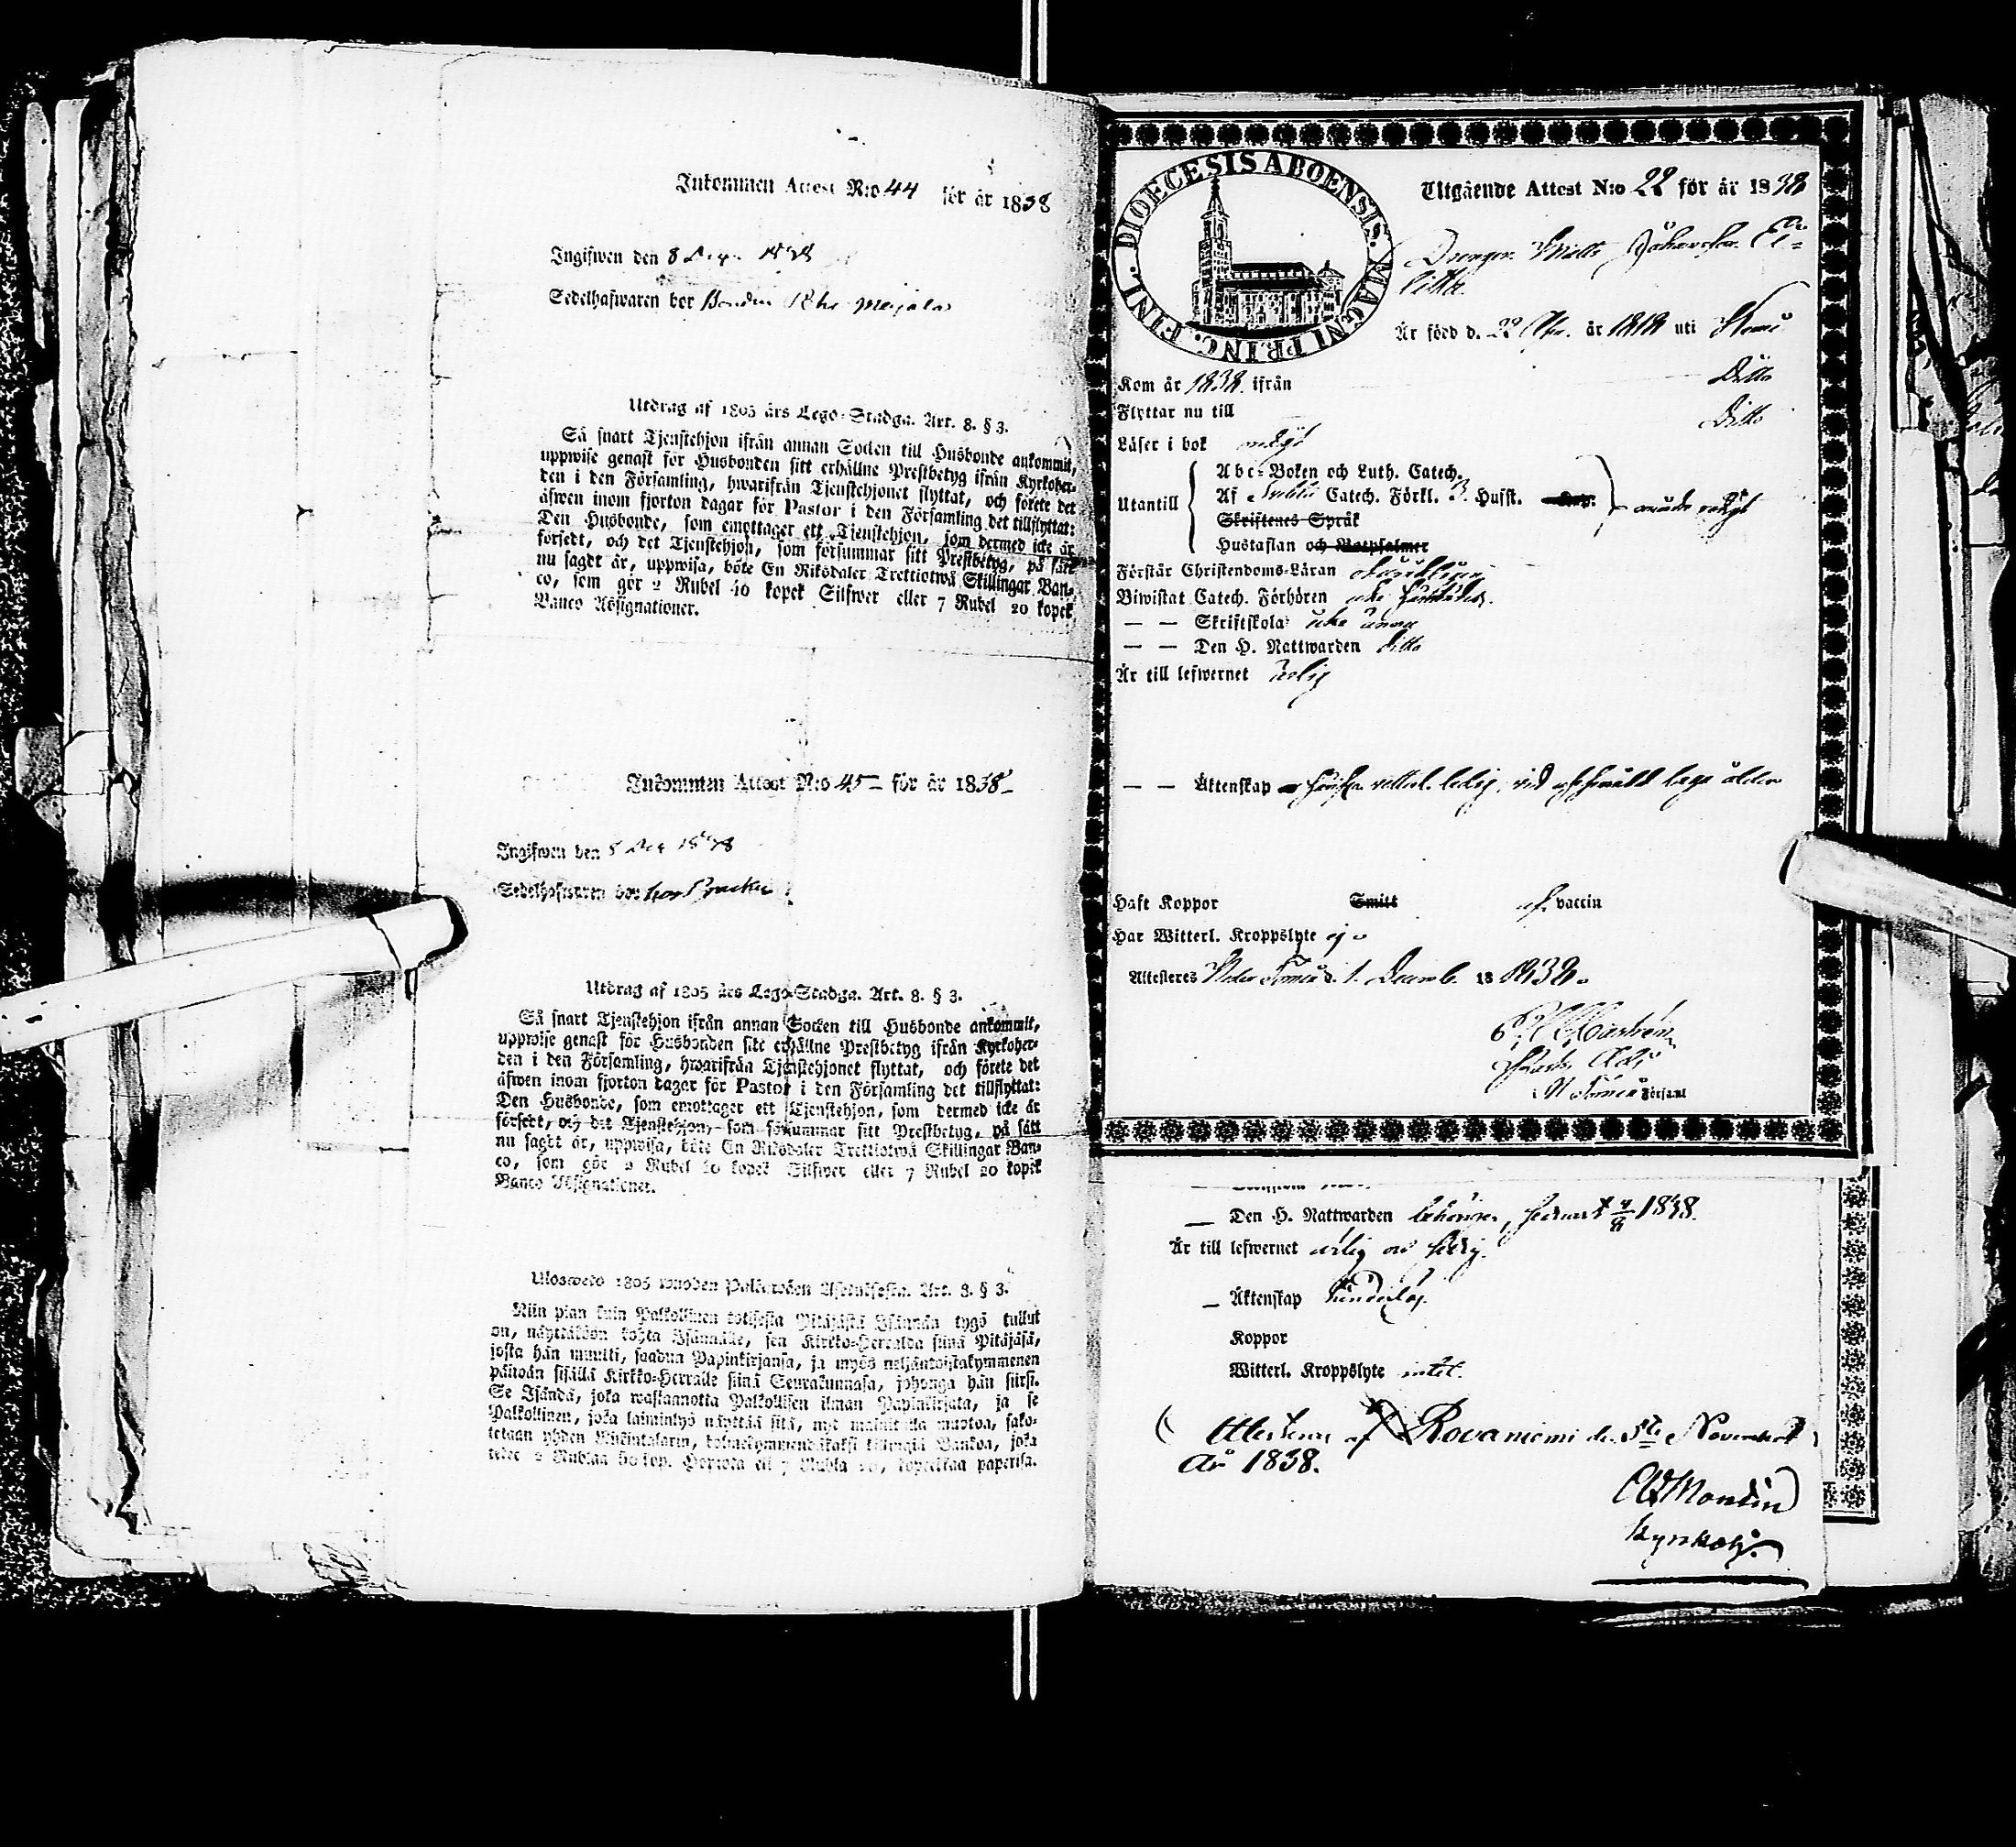 Inkommen Attest N:o 44 för år 1838
Ingifwen den 8 Dec. 1838
Sedelhafwaren bor Bonden
Utdrag af 1805 års Lego-Stadga. Art. 8. § 3.
Så snart Tjenstehjon ifrån annan Socken till Husbonde ankommit,
uppwise genast för Husbonden sitt erhållne Prestbetyg ifrån Kyrkoher-
den i den Församling, hwarifrån Tjenstehjonet flyttat, och förete det
äfwen inom fjorton dagar för Pastor i den Församling det tillflyttat:
Den Husbonde, som emottager ett Tjenstehjon, som dermed icke är
försedt, och det Tjenstehjon, som försummar sitt Prestbetyg, på sätt
nu sagdt är, uppwisa, böte En Riksdaler Trettiotwå Skillingar Ban-
co, som gör 2 Rubel 40 kopek Silfwer eller 7 Rubel 20 kopek
Banco Assignationer.
Inkommen Attest N:o 45 för år 1838
Ingifwen den 8 Dec 1838
Sedelhafwaren bor hos
Utdrag af 1805 års Lego-Stadga. Art. 8. § 3.
Så snart Tjenstehjon ifrån annan Socken till Husbonde ankommit,
uppwise genast för Husbonden sitt erhållne Prestbetyg ifrån Kyrkoher-
den i den Församling, hwarifrån Tjenstehjonet flyttat, och förete det
äfwen inom fjorton dagar för Pastor i den Församling det tillflyttat:
Den Husbonde, som emottager ett Tjenstehjon, som dermed icke är
försedt, och det Tjenstehjon, som försummar sitt Prestbetyg, på sätt
nu sagdt är, uppwisa, böte En Riksdaler Trettiotwå Skillingar Ban-
co, som gör 2 Rubel 40 kopek Silfwer eller 7 Rubel 20 kopek
Banco Assignationer.
Ulosweto 1805 wuoden Palkowäen Asetuksesta. Art. 8. § 3.
Niin pian kuin Palkollinen toisesta Pitäjästä Isännän tygö tullut
on, näyttäköön kohta Isännälle, sen Kirkko-Herralda siinä Pitäjäsä,
josta hän muutti, saadun Papinkirjansa, ja myös neljäntoistakymmenen
päiwän sisällä Kirkko-Herralle siinä Seurakunnasa, johonga hän siirsi.
Se Isändä, joka wastaanotta Palkollisen ilman Papinkirjata, ja se
Palkollinen, joka laiminlyö näyttää sitä, nyt mainitulla muotoa, sako-
tetaan yhden Riksintalarin, kolmekymmendäkaksi killingiä Bankoa, joka
tekee 2 Ruplaa 40 kop. Hopiota eli 7 Rupla 20 kopeekkaa paperisa.
DIOECESIS ABOENSIS. MAGNI PRINC. FINL.
Utgående Attest N:o 22 för år 1838
Drengen Matts Johansson
Är född d. 22 år 1818 uti Kemi
Kom år 1838 ifrån Ditto
Flyttar nu till Ditto
Läser i bok
Utantill
Abc-Boken och Luth. Catech.
Af Svebilii Catech. Förkl. 3. Hufst.
Skriftenes Språk
Hustaflan och Botpsalmer
Förstår Christendoms-Läran
Biwistat Catech. Förhören
— — Skriftskola icke ännu
— — Den H. Nattwarden ditto
Är till lefwernet ärlig
— — Äktenskap ledig
Haft Koppor Smitt af vaccin
Har Witterl. Kroppslyte ej
Attesteras Neder Torneå d. 1. Decemb. 18 1838.
N. Torneå Församl
— Den H. Nattwarden behörigen, senast 1838.
Är till lefwernet ärlig och
— Äktenskap hinderlös.
Koppor
Witterl. Kroppslyte intet.
Attesterar af Rovaniemi den 5te November
år 1838.
Kyrkoh.